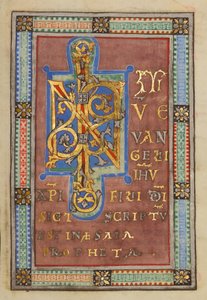 V E
VAN
GELII
IHV
XPI FILII DI
SICVT SCRIPTV
EST INÆSAIA
PROPHETA